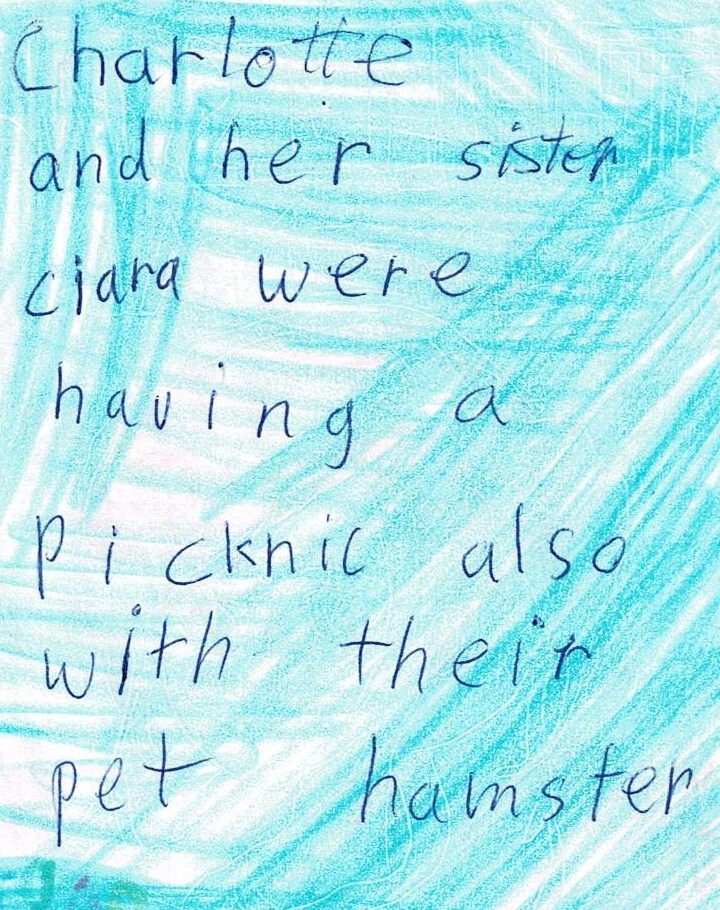 Charlotte
and her sister
ciara were
having a
picknic also
with their
pet hamster